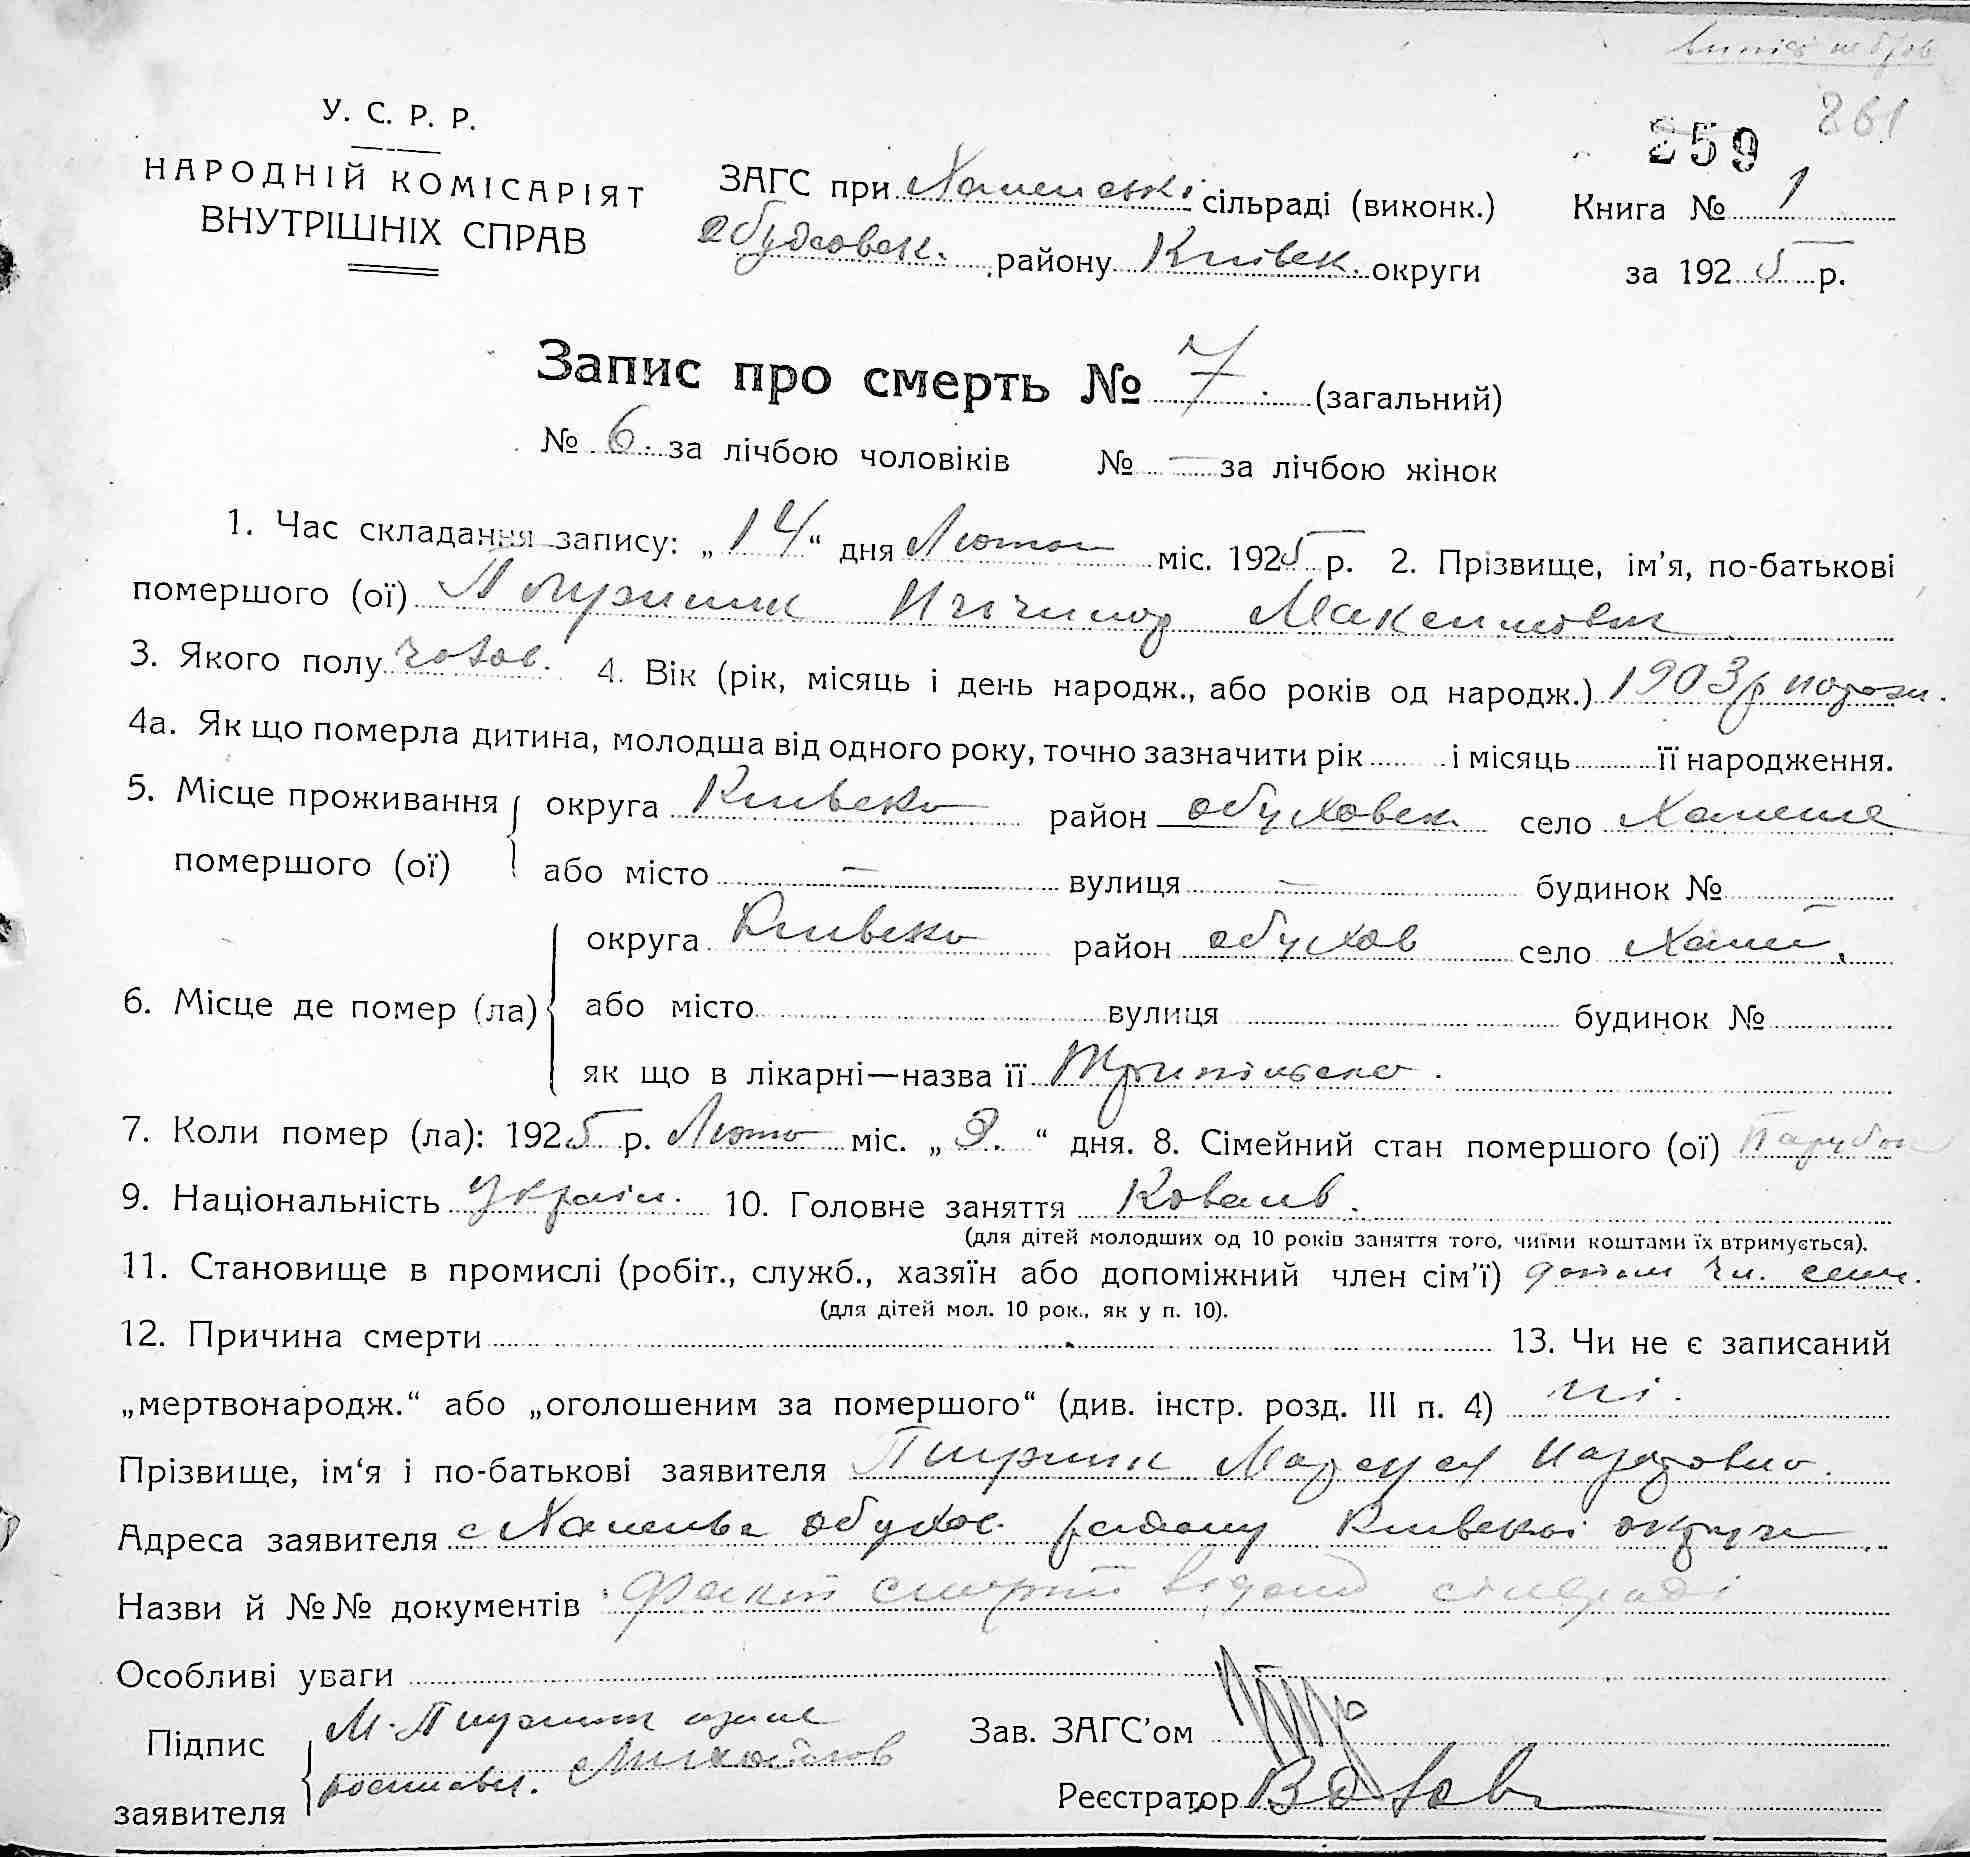 261
259
У. С. Р. Р.
НАРОДНІЙ КОМІСАРІЯТ
ВНУТРІШНІХ СПРАВ
ЗАГС при сільраді (виконк.)
району Київськ. округи
Книга № 1
за 1925 р.
Запис про смерть № 7. (загальний)
№ 6. за лічбою чоловіків № — за лічбою жінок
1. Час складання запису: „14“ дня Лютого міс. 1925 р. 2. Прізвище, ім'я, по-батькові
помершого (ої) Максимович
3. Якого полу чолов. 4. Вік (рік, місяць і день народж., або років од народж.) 1903 р
4а. Як що померла дитина, молодша від одного року, точно зазначити рік і місяць її народження.
5. Місце проживання округа Київська район Обуховськ село
помершого (ої) або місто — вулиця — будинок № —
6. Місце де помер (ла) округа Київська район Обухов село
або місто вулиця будинок №
як що в лікарні—назва її Трипільська.
7. Коли помер (ла): 1925 р. Лютого міс. „9.“ дня. 8. Сімейний стан помершого (ої) Парубок
9. Національність Україн. 10. Головне заняття Коваль.
(для дітей молодших од 10 років заняття того, чиїми коштами їх втримується).
11. Становище в промислі (робіт., служб., хазяїн або допоміжний член сім'ї) допом чл. сем.
(для дітей мол. 10 рок., як у п. 10).
12. Причина смерти 13. Чи не є записаний
„мертвонародж.“ або „оголошеним за помершого“ (див. інстр. розд. III п. 4) ні.
Прізвище, ім'я і по-батькові заявителя
Адреса заявителя с. Обухов. району Київської округи
Назви й №№ документів Факт смерти відом сільраді
Особливі уваги
Підпис
заявителя
М.
Зав. ЗАГС'ом
Реєстратор